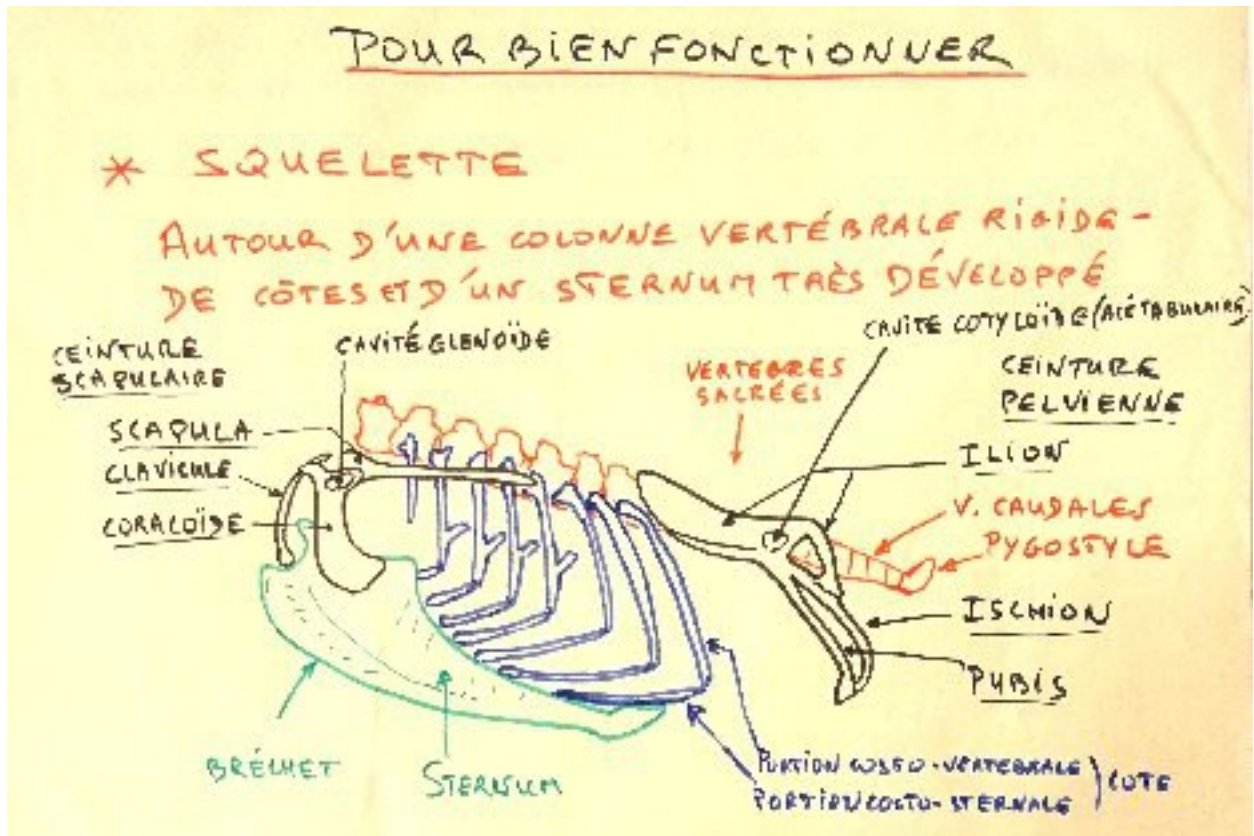 POUR BIEN FONCTIONNER
* SQUELETTE
AUTOUR D'UNE COLONNE VERTÉBRALE RIGIDE -
DE CÔTES ET D'UN STERNUM TRÈS DÉVELOPPÉ
CEINTURE
SCAPULAIRE
CAVITÉ GLENOÏDE
CAVITE COTYLOÏDE (ACÉTABULAIRE)
VERTEBRES
SACRÉES
CEINTURE
PELVIENNE
SCAPULA
CLAVICULE
CORACOÏDE
ILION
V. CAUDALES
PYGOSTYLE
ISCHION
PUBIS
BRÉCHET
STERNUM
PORTION COSTO-VERTEBRALE
PORTION COSTO-STERNALE
COTE